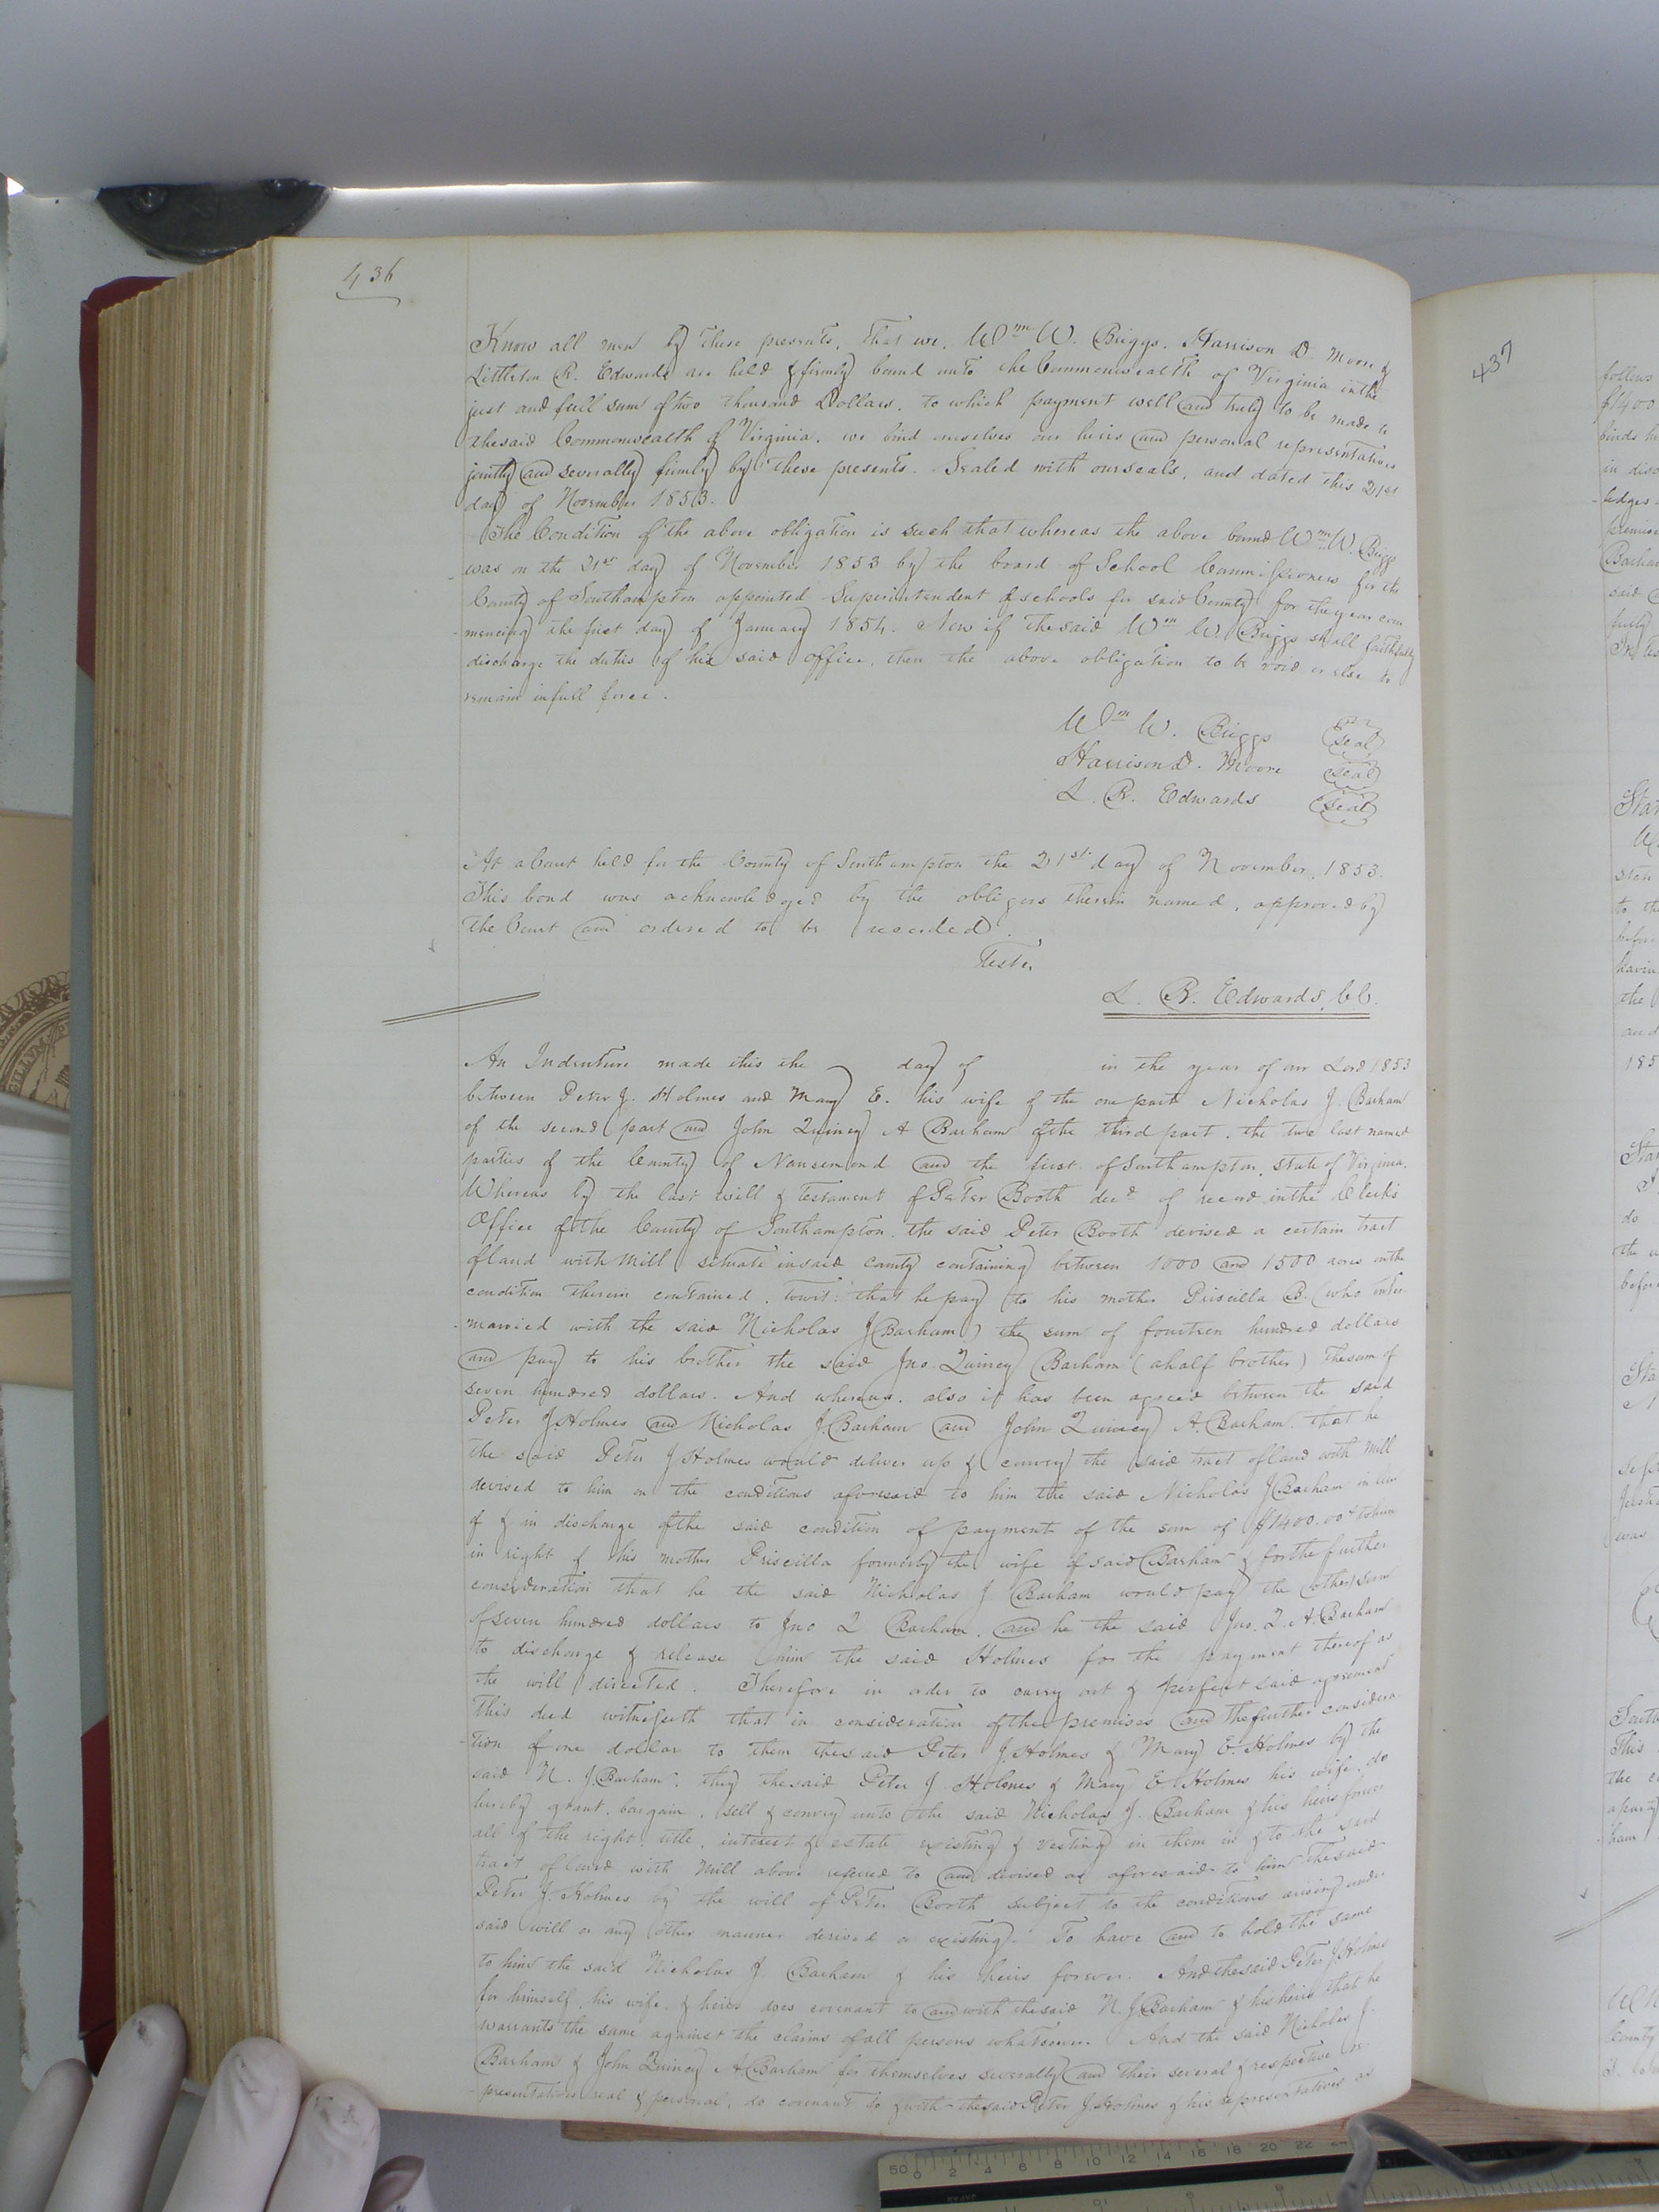 436
Know all men by these presents, that we, Wm W. Briggs, Harrison D. Moore &
Littleton R. Edwards are held & firmly bound unto the Commonwealth of Virginia in the
just and full sum of two thousand Dollars, to which payment well and truly to be made to
the said Commonwealth of Virginia, we bind ourselves our heirs and personal representatives
jointly and severally firmly by these presents. Sealed with our seals, and dated this 21st
day of November 1853.
The Condition of the above obligation is such that whereas the above bound Wm W. Briggs
was on the 21st day of November 1853 by the board of School Commissioners for the
County of Southampton appointed Superintendent of schools for said County for the year com
-mencing the first day of January 1854. Now if the said Wm W. Briggs shall faithfully
discharge the duties of his said office, then the above obligation to be void or else to
remain in full force.
Wm W. Briggs (seal)
Harrison D. Moore (seal)
L. R. Edwards (seal)
At a Court held for the County of Southampton the 21st day of November, 1853.
This bond was acknowledged by the obligors therein named, approved by
the Court and ordered to be recorded.
Teste,
L. R. Edwards, C.C.
An Indenture made this the day of in the year of our Lord 1853
between Peter J. Holmes and Mary E. his wife of the one part Nicholas J. Barham
of the second part and John Quincy A Barham of the third part, the two last named
parties of the County of Nansemond and the first of Southampton, State of Virginia.
Whereas by the last will & testament of Peter Booth decd of record in the Clerk's
Office of the County of Southampton, the said Peter Booth devised a certain tract
of land with Mill situate in said county containing between 1000 and 1500 acres on the
condition therein contained, towit: that he pay to his mother Priscilla B. (who inter-
-married with the said Nicholas J Barham) the sum of fourteen hundred dollars
and pay to his brother the said Jno. Quincy Barham (a half brother) the sum of
seven hundred dollars. And whereas, also it has been agreed between the said
Peter J. Holmes and Nicholas J. Barham and John Quincy A. Barham, that he
the said Peter J Holmes would deliver up & convey the said tract of land with Mill
devised to him on the conditions aforesaid to him the said Nicholas J Barham in lieu
of & in discharge of the said condition of payment of the sum of $1400.00 to him
in right of his mother Priscilla formerly the wife of said Barham & for the further
consideration that he the said Nicholas J Barham would pay the other sum
of seven hundred dollars to Jno Q Barham, and he the said Jno. Q. A. Barham
to discharge & release him the said Holmes for the payment thereof as
the will directed. Therefore in order to carry out & perfect said agreement
This deed witnesseth that in consideration of the premises and the further considera
-tion of one dollar to them the said Peter J. Holmes & Mary E. Holmes by the
said N. J. Barham, they the said Peter J. Holmes & Mary E Holmes his wife, do
hereby grant, bargain, sell & convey unto the said Nicholas J. Barham & his heirs forever
all of the right, title, interest & estate existing & vesting in them in & to the said
tract of land with Mill above referred to and devised as aforesaid to him the said
Peter J. Holmes by the will of Peter Booth subject to the conditions arising under
said will or any other manner derived or existing. To have and to hold the same
to him the said Nicholas J. Barham & his heirs forever. And the said Peter J. Holmes
for himself, his wife, & heirs does covenant to and with the said N. J. Barham & his heirs that he
warrants the same against the claims of all persons whatsoever. And the said Nicholas J.
Barham & John Quincy A Barham for themselves severally and their several & respective re-
-presentatives real & personal, do covenant to & with the said Peter J. Holmes & his representatives as
437
follows
$1400